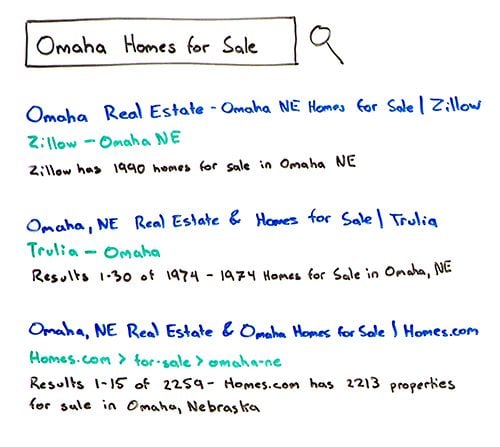 Omaha Homes for Sale
Omaha Real Estate - Omaha NE Homes for Sale | Zillow
Zillow - Omaha NE
Zillow has 1990 homes for sale in Omaha NE
Omaha, NE Real Estate & Homes for Sale | Trulia
Trulia - Omaha
Results 1-30 of 1974 - 1974 Homes for Sale in Omaha, NE
Omaha, NE Real Estate & Omaha Homes for Sale | Homes.com
Homes.com > for-sale > omaha-ne
Results 1-15 of 2259 - Homes.com has 2213 properties
for sale in Omaha, Nebraska